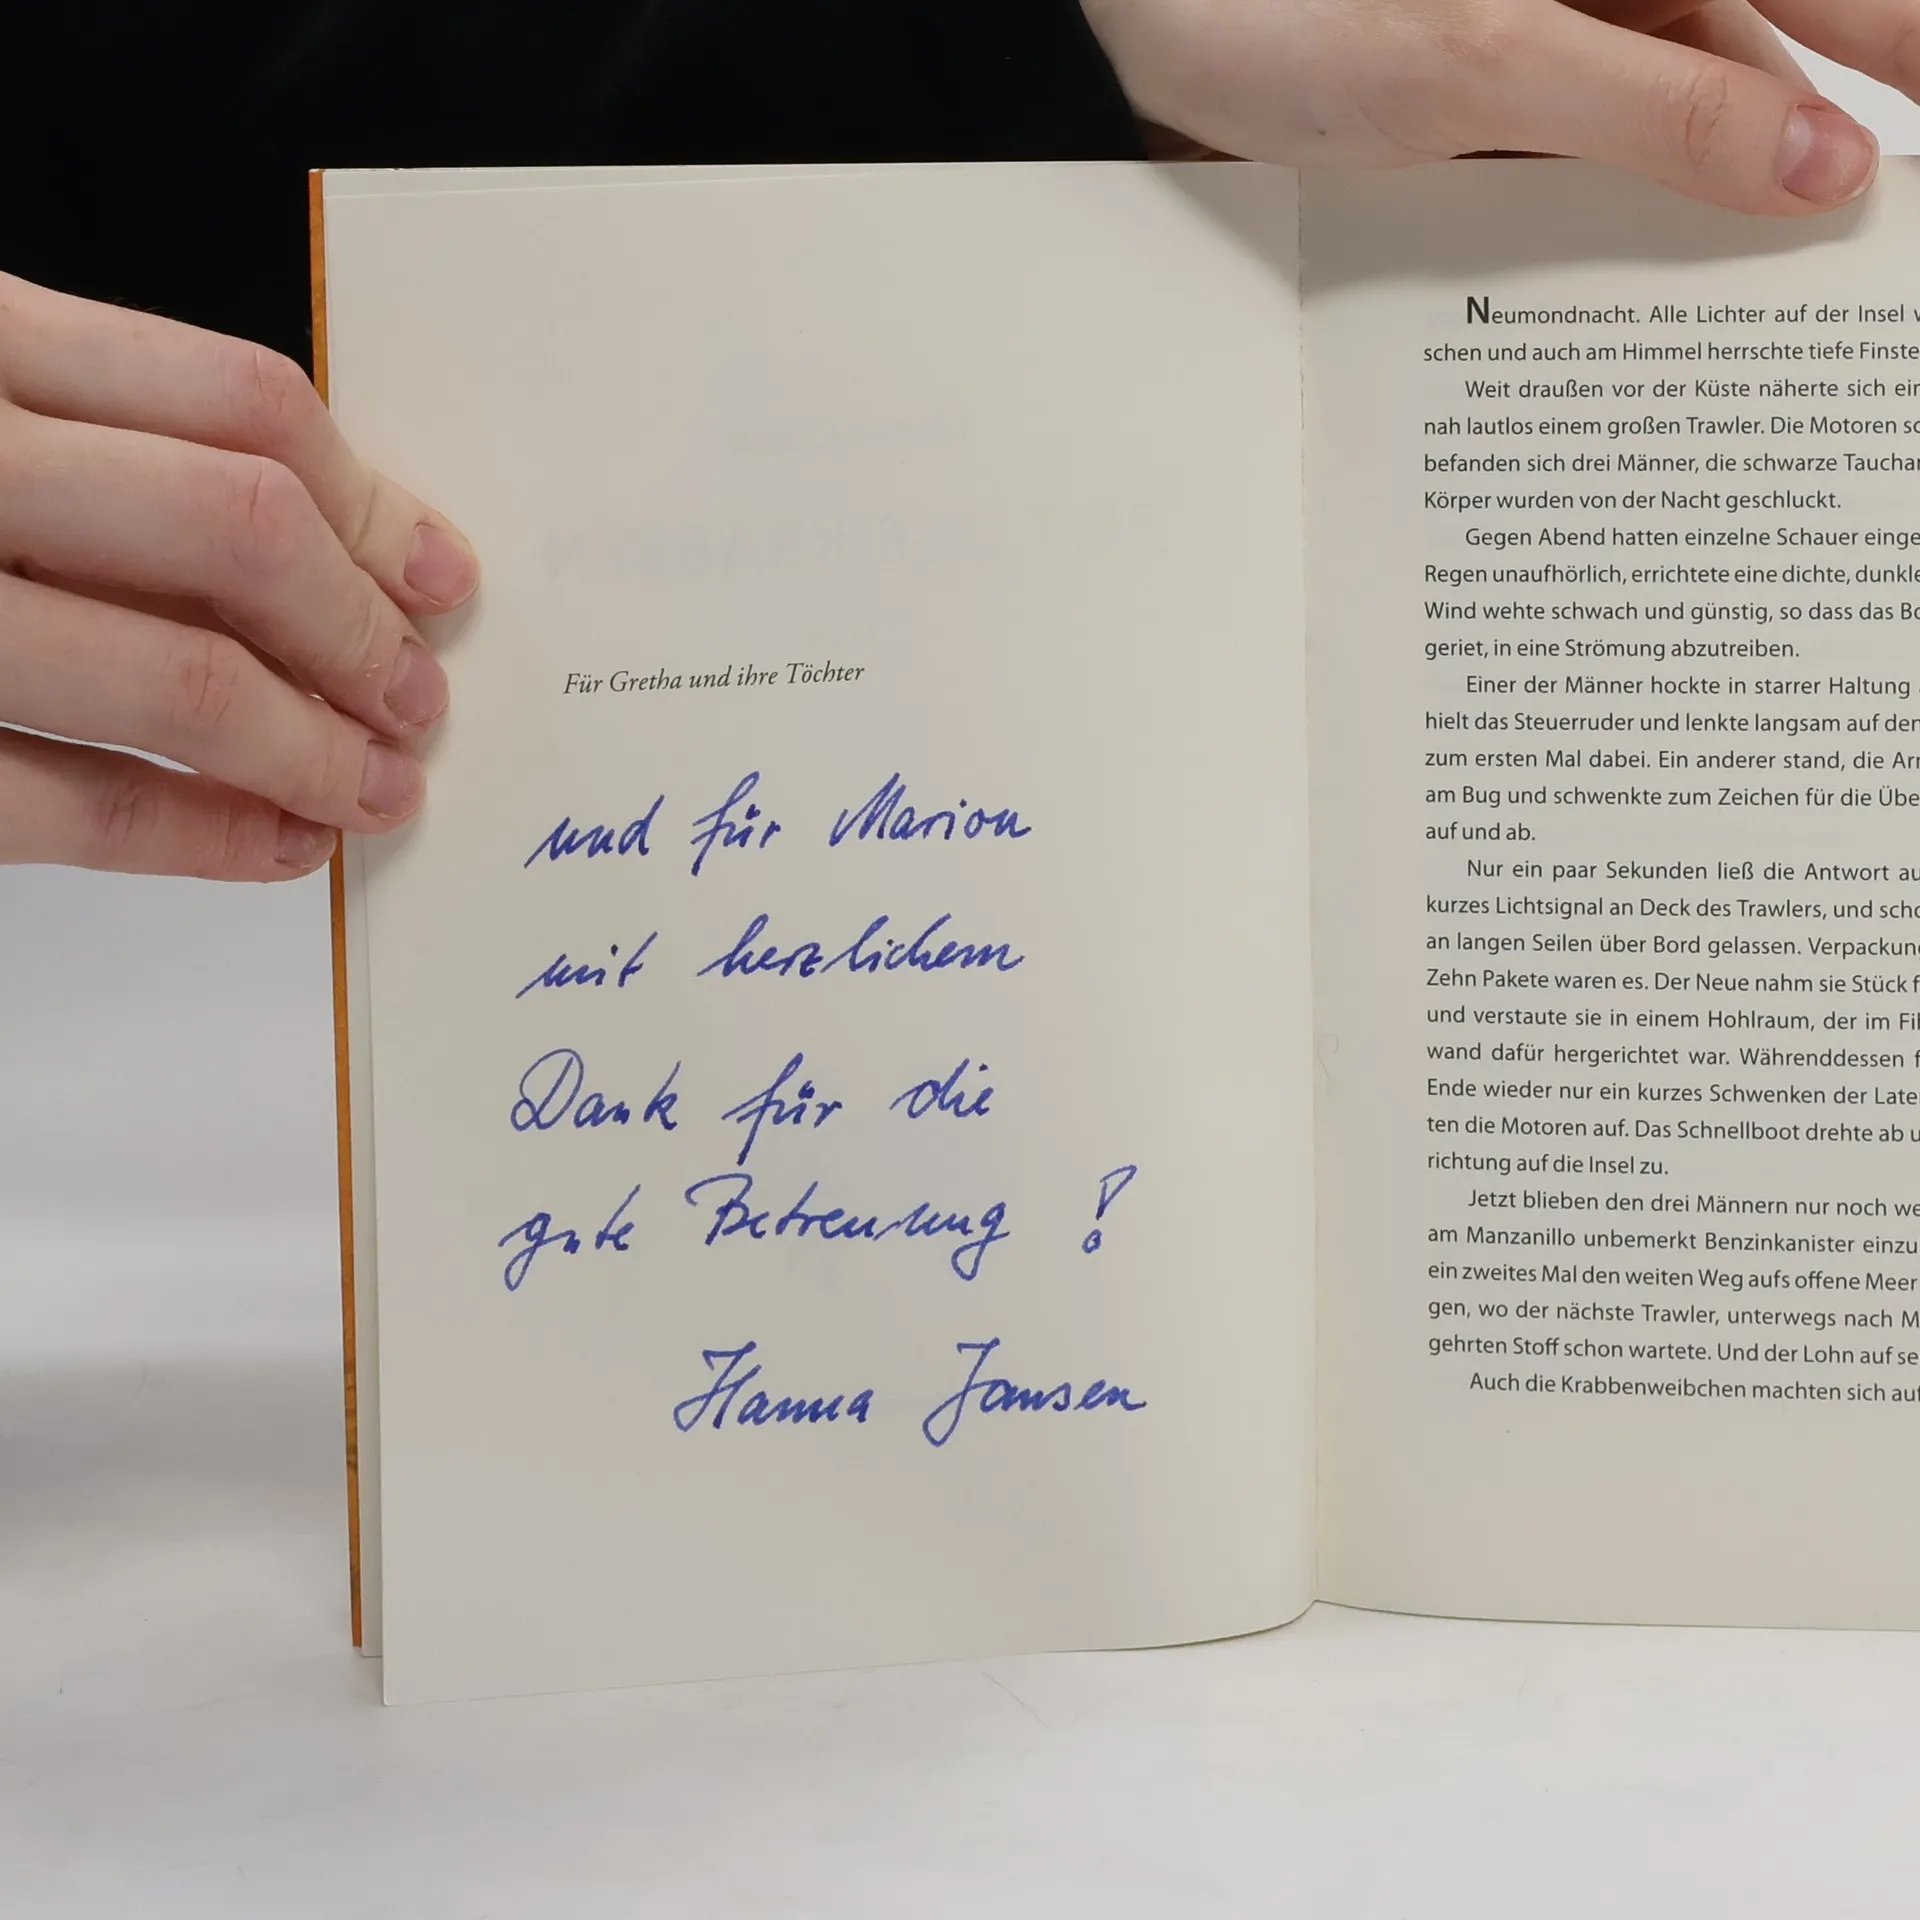 Für Gretha und ihre Töchter
und für Marion
mit herzlichem
Dank für die
gute Betreuung !
Hanna Jansen
Neumondnacht. Alle Lichter auf der Insel
schen und auch am Himmel herrschte tiefe Finste
Weit draußen vor der Küste näherte sich ein
nah lautlos einem großen Trawler. Die Motoren sc
befanden sich drei Männer, die schwarze Tauchan
Körper wurden von der Nacht geschluckt.
Gegen Abend hatten einzelne Schauer einge
Regen unaufhörlich, errichtete eine dichte, dunkle
Wind wehte schwach und günstig, so dass das Bo
geriet, in eine Strömung abzutreiben.
Einer der Männer hockte in starrer Haltung
hielt das Steuerruder und lenkte langsam auf den
zum ersten Mal dabei. Ein anderer stand, die Arm
am Bug und schwenkte zum Zeichen für die Übe
auf und ab.
Nur ein paar Sekunden ließ die Antwort au
kurzes Lichtsignal an Deck des Trawlers, und scho
an langen Seilen über Bord gelassen. Verpackung
Zehn Pakete waren es. Der Neue nahm sie Stück f
und verstaute sie in einem Hohlraum, der im Fib
wand dafür hergerichtet war. Währenddessen f
Ende wieder nur ein kurzes Schwenken der Later
ten die Motoren auf. Das Schnellboot drehte ab u
richtung auf die Insel zu.
Jetzt blieben den drei Männern nur noch we
am Manzanillo unbemerkt Benzinkanister einzu
ein zweites Mal den weiten Weg aufs offene Meer
gen, wo der nächste Trawler, unterwegs nach M
gehrten Stoff schon wartete. Und der Lohn auf se
Auch die Krabbenweibchen machten sich auf